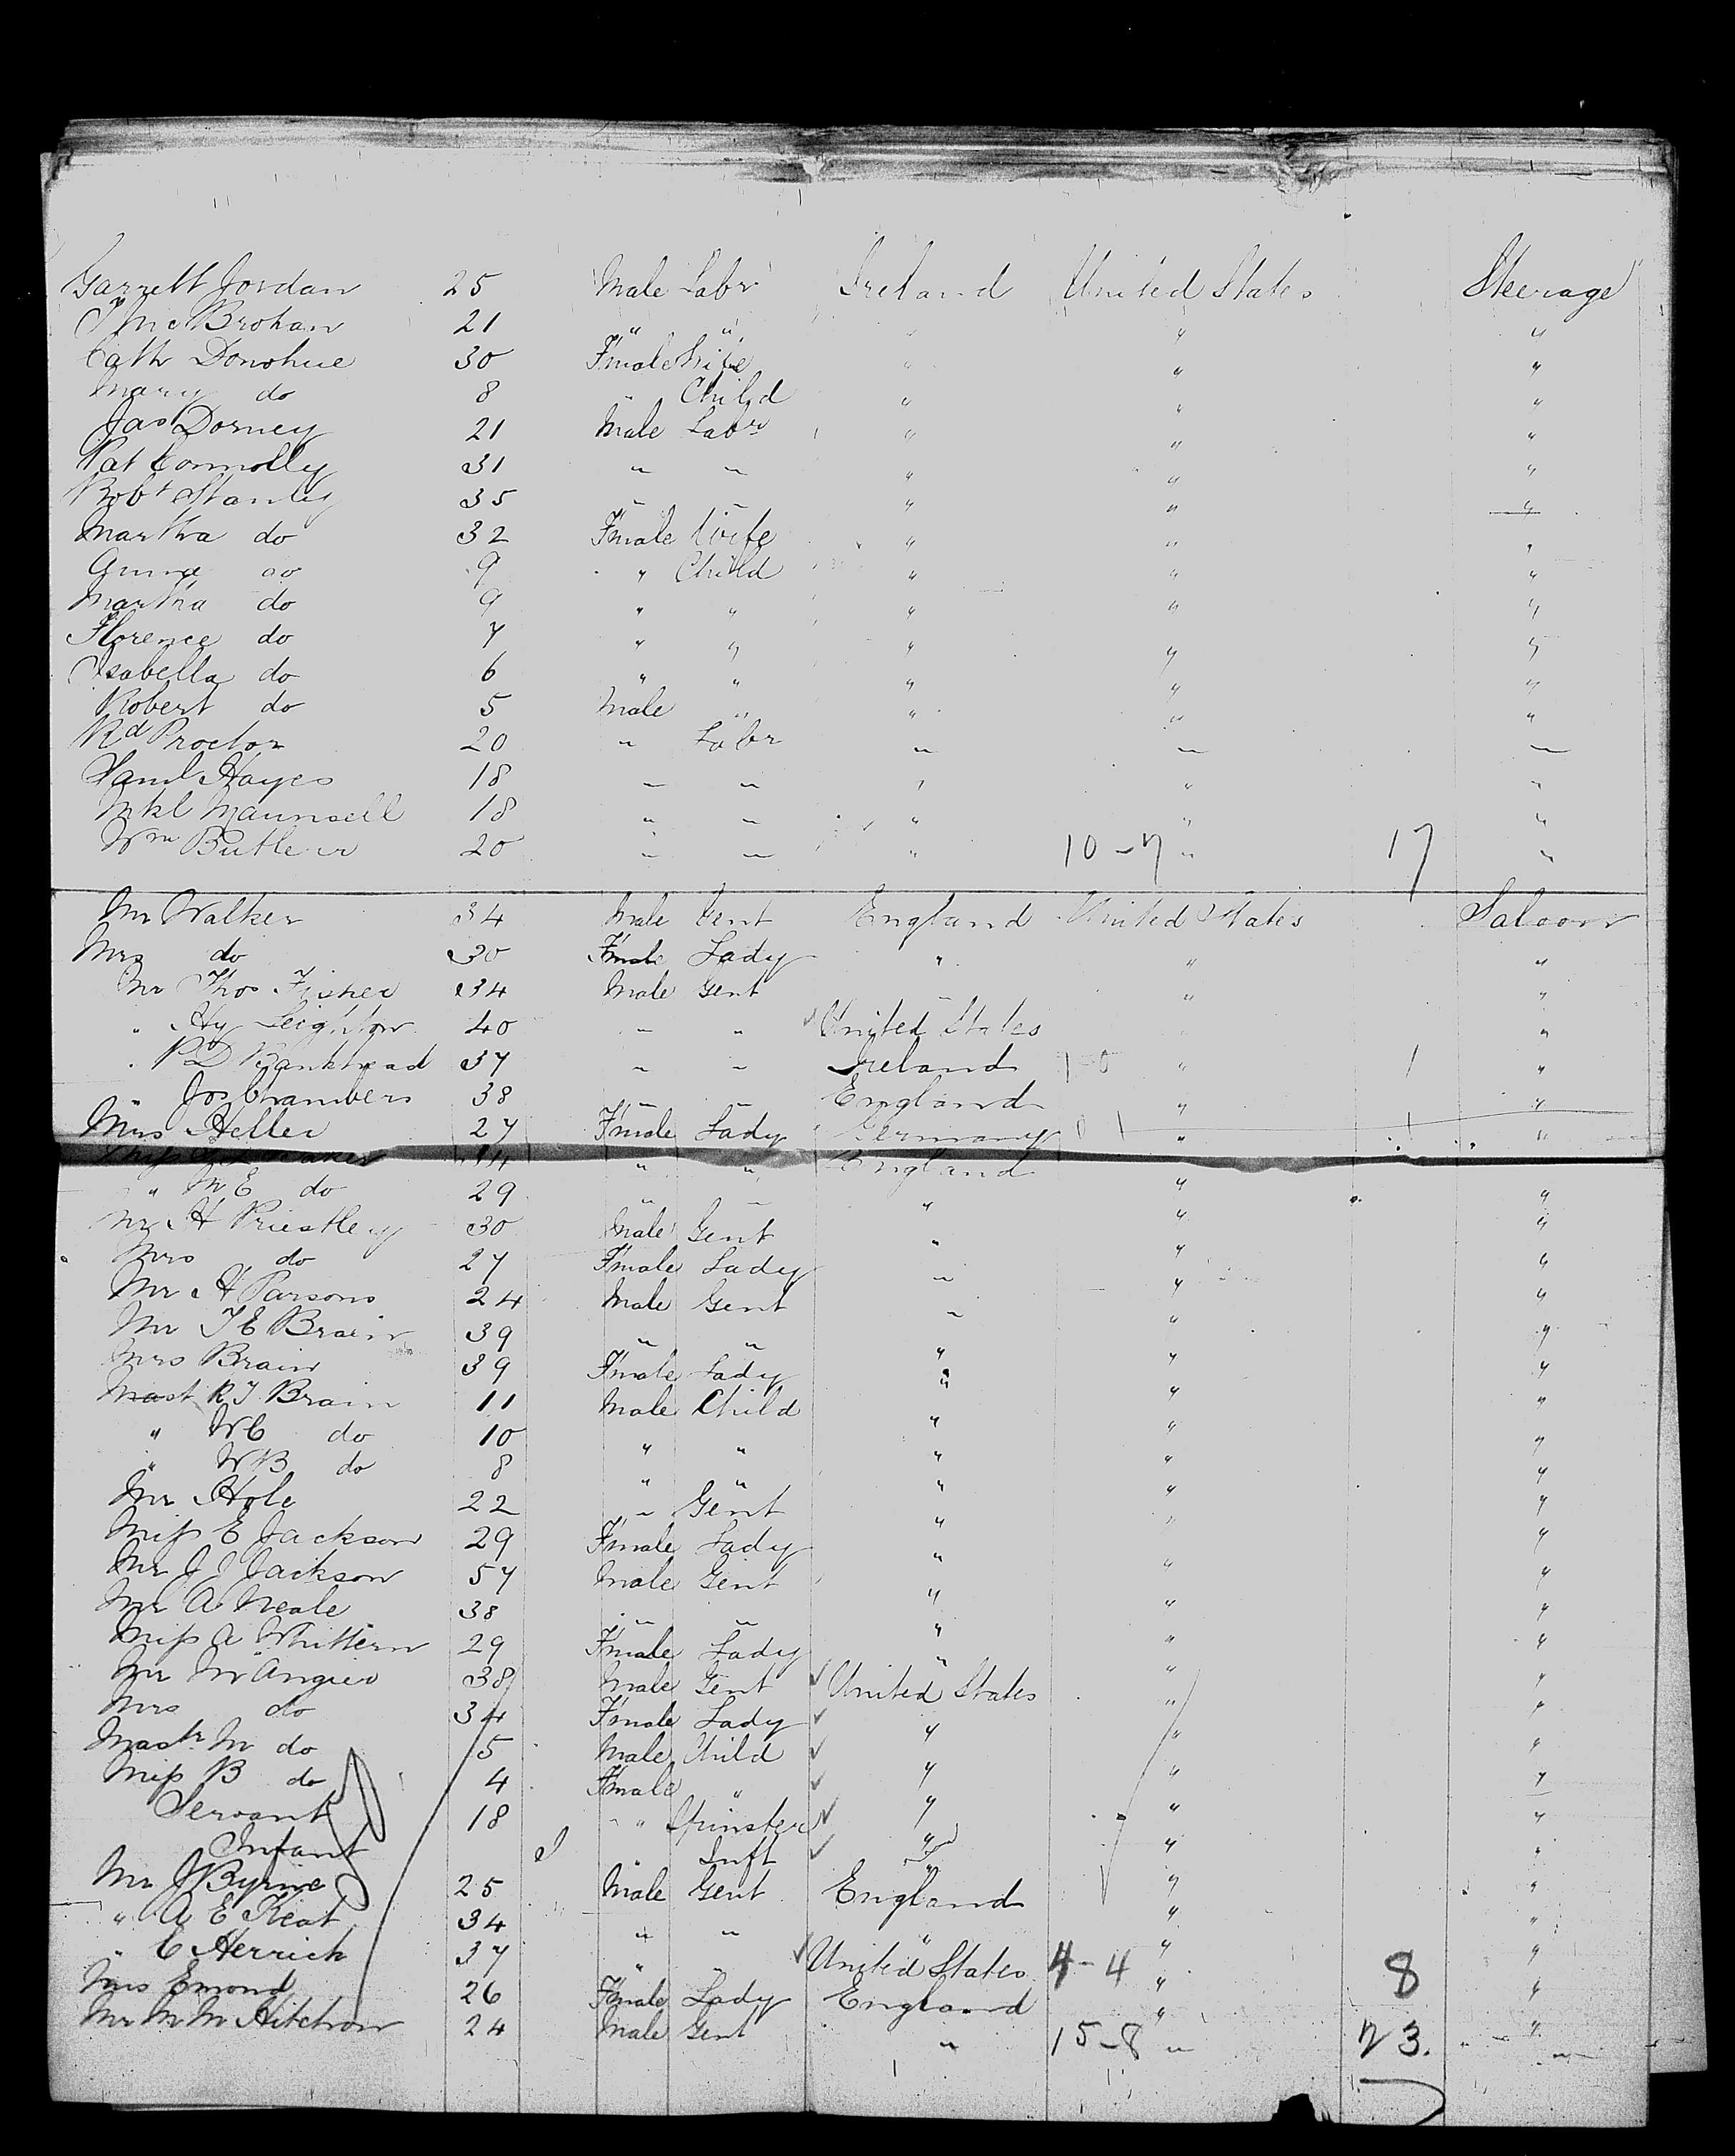 Garrett Jordan 25 Male Labr Ireland United States Steerage
Brohan 21 " " " " "
Cath Donohue 30 Fmale Wife " " "
Mary do 8 " Child " " "
Jas Dorney 21 Male Labr " " "
Pat Connolly 31 " " " " "
Robt Stanley 35 " " " " "
Martha do 32 Fmale Wife " " "
do 9 " Child " " "
Martha do 9 " " " " "
Florence do 7 " " " " "
Isabella do 6 " " " " "
Robert do 5 Male " " " "
Rd Proctor 20 " Labr " " "
Saml Hayes 18 " " " " "
Mkl Maunsell 18 " " " " "
Wm Butler 20 " " " 10-7 " 17 "
Mr Walker 34 Male Gent England United States Saloon
Mrs do 30 Fmale Lady " " "
Mr Thos Fisher 34 Male Gent " " "
" Hy Leighton 40 " " United States " "
" Bankhead 37 " " Ireland 1-0 " 1 "
" Jos Chambers 38 " " England " "
Mrs Heller 27 Fmale Lady Germany 0 1 " 1 "
Miss 34 " " England " "
" M E do 29 " " " " "
Mr H Priestley 30 Male Gent " " "
Mrs do 27 Fmale Lady " " "
Mr H Parsons 24 Male Gent " " "
Mr T E Brain 39 " " " " "
Mrs Brain 39 Fmale Lady " " "
Mast R T Brain 11 Male Child " " "
" W C do 10 " " " " "
" W B do 8 " " " " "
Mr Hole 22 " Gent " " "
Miss E Jackson 29 Fmale Lady " " "
Mr J J Jackson 57 Male Gent " " "
Mr A Neale 38 " " " " "
Miss A Whittern 29 Fmale Lady " " "
Mr W Angus 38 Male Gent United States " "
Mrs do 34 Fmale Lady " " "
Mastr M do 5 Male Child " " "
Miss B do 4 Fmale " " " "
Servant 18 " Spinster " " "
Infant " Inft " " "
Mr J Byrne 25 Male Gent England " "
" A E Keat 34 " " " " "
" C Herrick 37 " " United States 4-4 " 8 "
Mrs Emond 26 Fmale Lady England " "
Mr Hitchon 24 Male Gent " 15-8 " 23. "